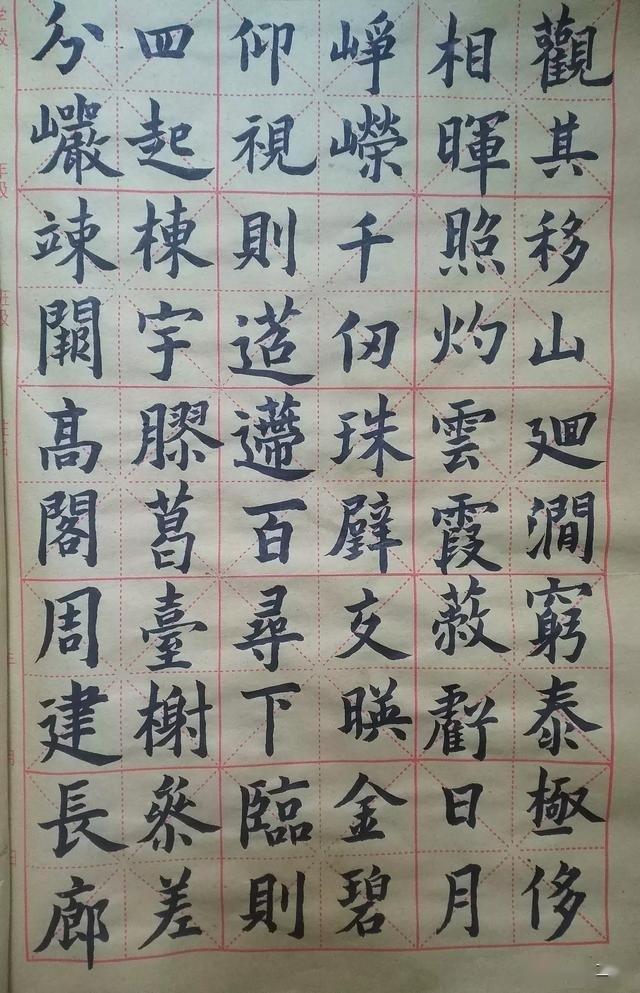 觀其移山廻澗窮泰極侈
相暉照灼雲霞蔽虧日月
崢嶸千仞珠壁交暎金碧
仰視則迢遰百尋下臨則
四起棟宇膠葛臺榭參差
分巖竦闕高閣周建長廊